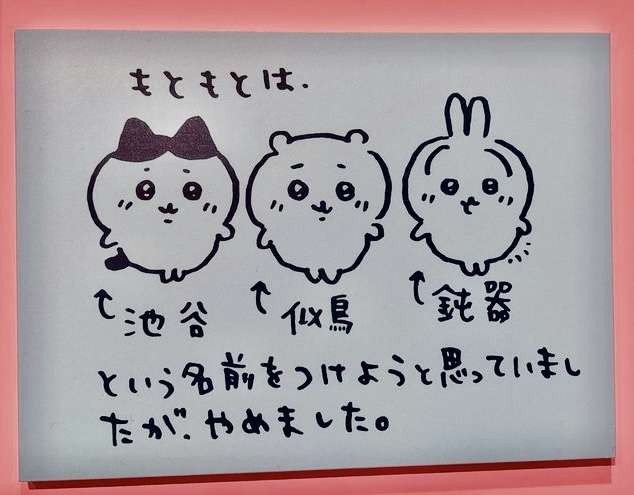 もともとは.
↑池谷 ↑似鳥 ↑鈍器
という名前をつけようと思っていまし
たが、やめました。